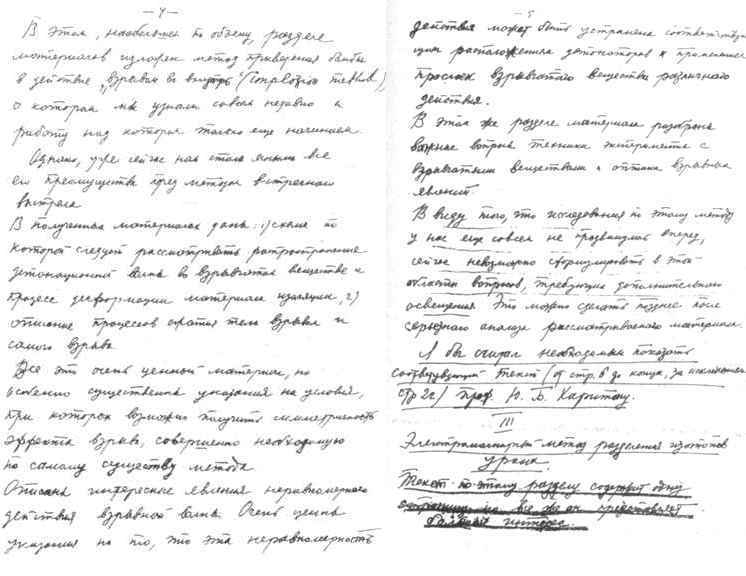 — 4 —
В этом, наибольшем по объему, разделе
материалов изложен метод приведения бомбы
в действие „взрывом во внутрь" (implosion method),
о котором мы узнали совсем недавно и
работу над которым только еще начинаем.
Однако, уже сейчас нам стали ясны все
его преимущества перед методом встречного
выстрела.
В полученных материалах даны: 1) схема по
которой следует рассматривать распространение
детонационной волны во взрывчатом веществе и
процесс деформации материала изоляции 2)
описание процессов сжатия тела взрывом и
самого взрыва.
Все это очень ценный материал, но
особенно существенны указания на условия,
при которых возможно получить симметричность
эффекта взрыва, совершенно необходимую
по самому существу метода.
Описаны интересные явления неравномерного
действия взрывной волны. Очень ценны
указания на то, что эта неравномерность
— 5
действия может быть устранена соответствую-
щим расположением детонаторов и применением
прослоек взрывчатого вещества различного
действия.
В этом же разделе материала разобраны
важные вопросы техники эксперимента с
взрывчатыми веществами и оптика взрывных
явлений.
В виду того, что исследования по этому методу
у нас еще совсем не продвинулись вперед,
сейчас невозможно сформулировать в этой
области вопросы, требующие дополнительного
освещения. Это можно сделать позднее после
серьезного анализа рассматриваемого материала.
Я бы считал необходимым показать
соответствующий текст (от стр. 6 до конца, за исключением
стр 22) проф. Ю. Б. Харитону.
III
Электромагнитный метод разделения изотопов
урана.
Текст по этому разделу содержит одну
страницу но все же он представляет
большой интерес